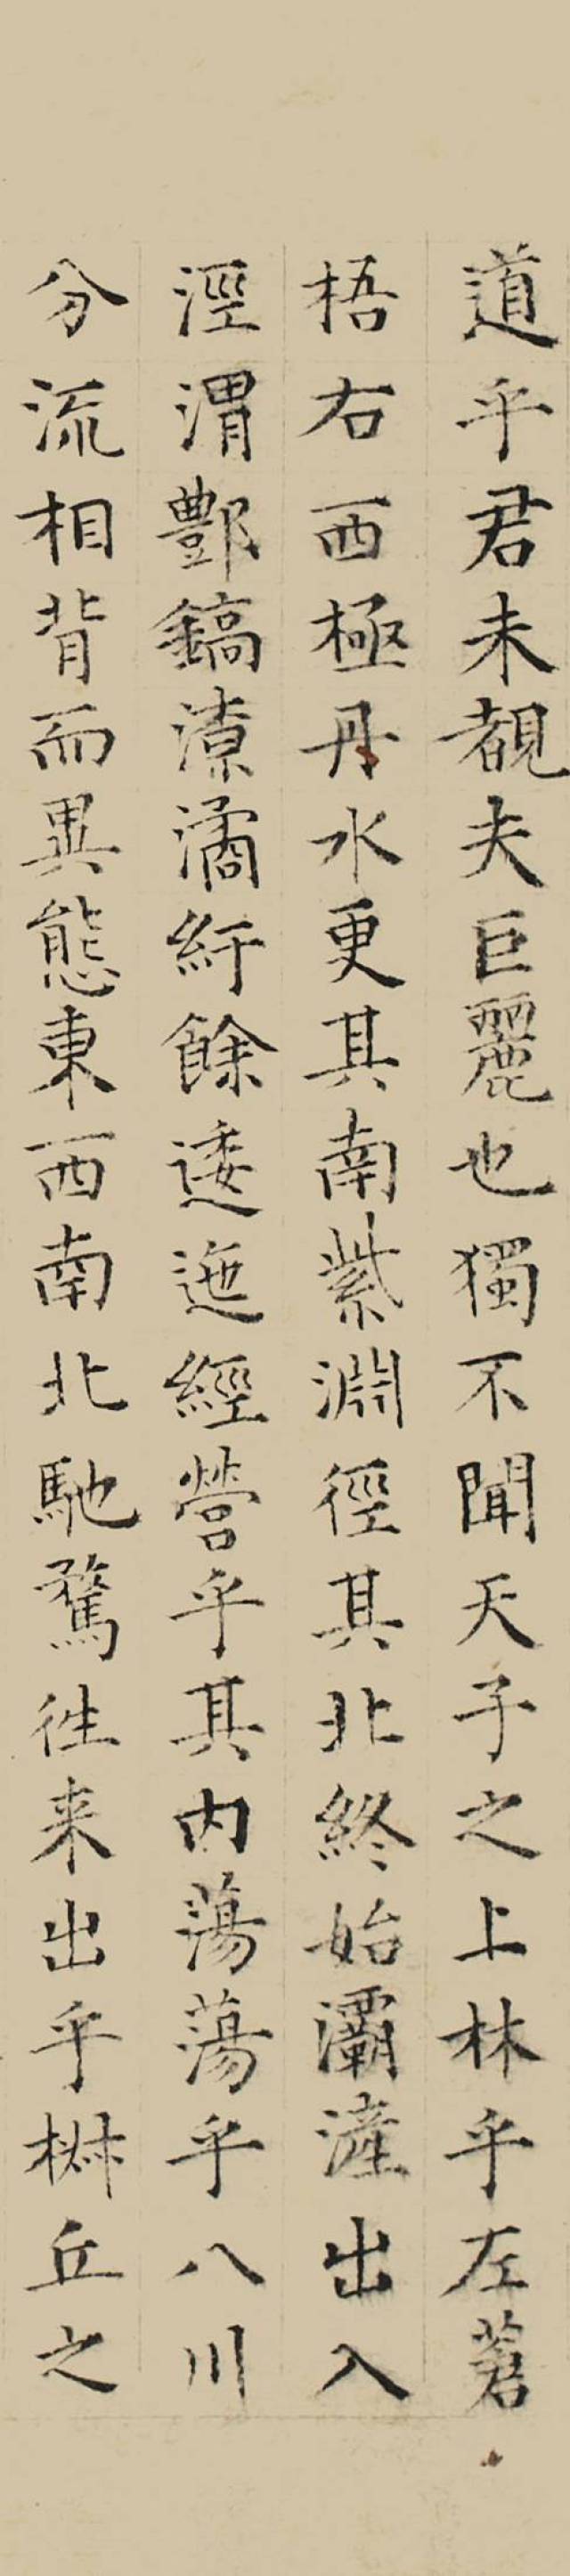 道乎君未覩夫巨麗也獨不聞天子之上林乎左蒼
梧右西極丹水更其南紫淵徑其北終始灞滻出入
涇渭酆鎬潦潏紆餘逶迤經營乎其内蕩蕩乎八川
分流相背而異態東西南北馳騖徃来出乎椒丘之